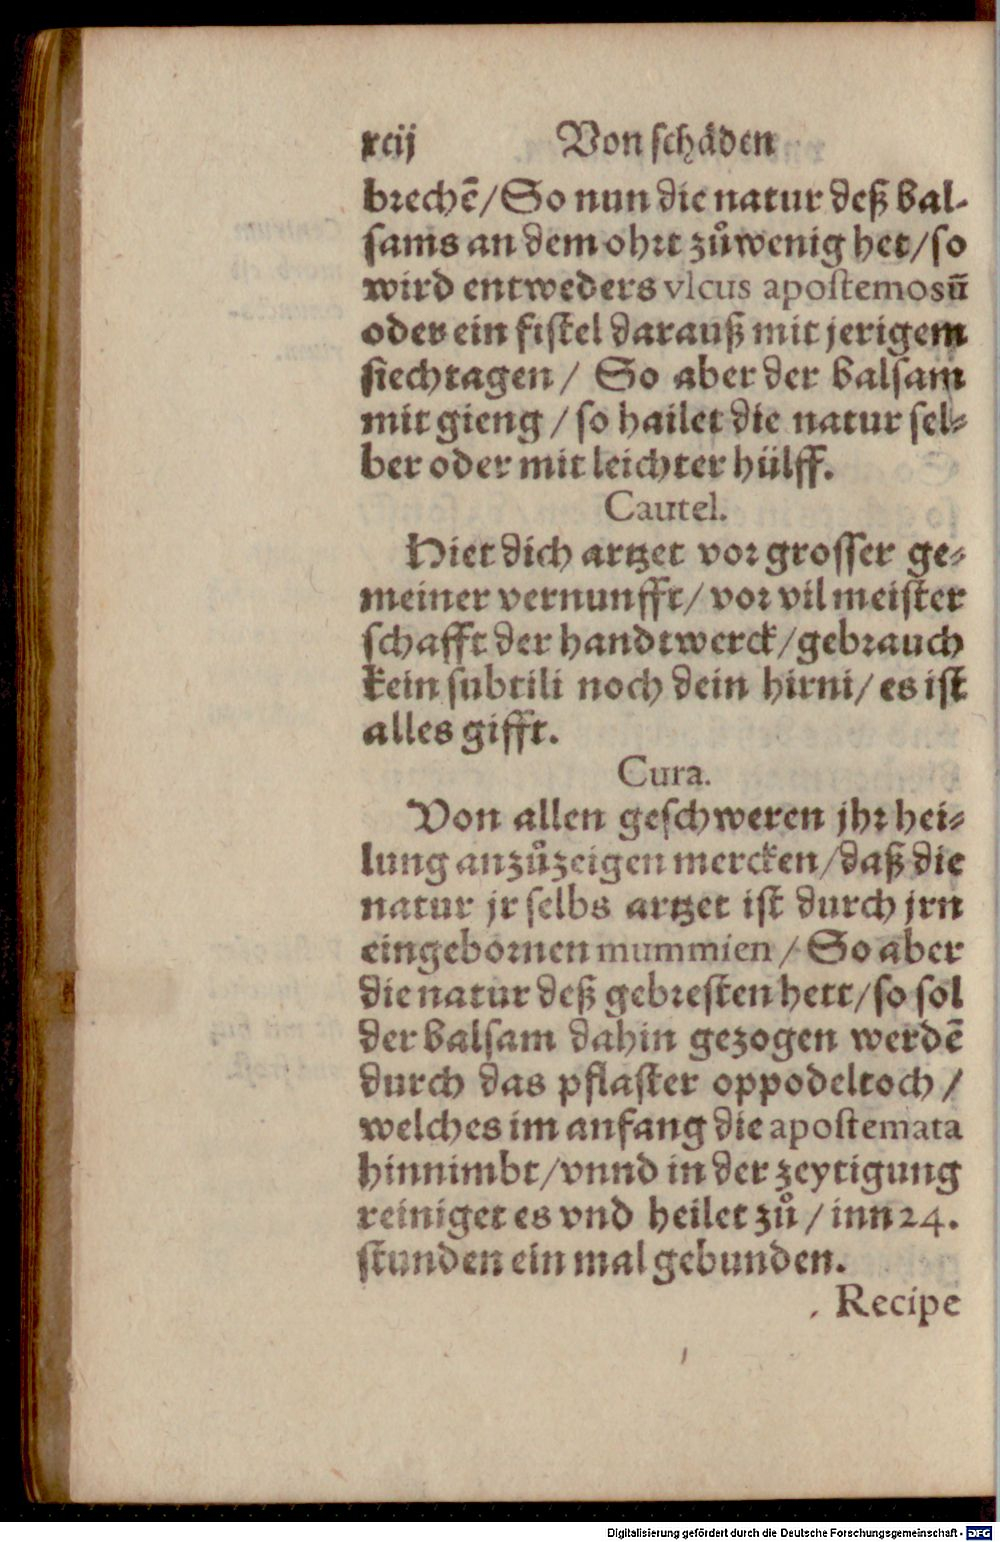 xcij Von schäden
brechē/So nun die natur deß bal-
sams an dem ohrt zůwenig het/so
wird entweders vlcus apostemosū
oder ein fistel darauß mit jerigem
siechtagen/ So aber der balsam
mit gieng/so hailet die natur sel-
ber oder mit leichter hülff.
Cautel.
Hiet dich artzet vor grosser ge-
meiner vernunfft/vor vil meister
schafft der handtwerck/gebrauch
kein subtili noch dein hirni/es ist
alles gifft.
Cura.
Von allen geschweren jhr hei-
lung anzůzeigen mercken/daß die
natur jr selbs artzet ist durch jrn
eingebornen mummien/So aber
die natur deß gebresten hett/so sol
der balsam dahin gezogen werdē
durch das pflaster oppodeltoch/
welches im anfang die apostemata
hinnimbt/vnnd in der zeytigung
reiniget es vnd heilet zů/inn 24.
stunden ein mal gebunden.
Recipe
Digitalisierung gefördert durch die Deutsche Forschungsgemeinschaft - DFG